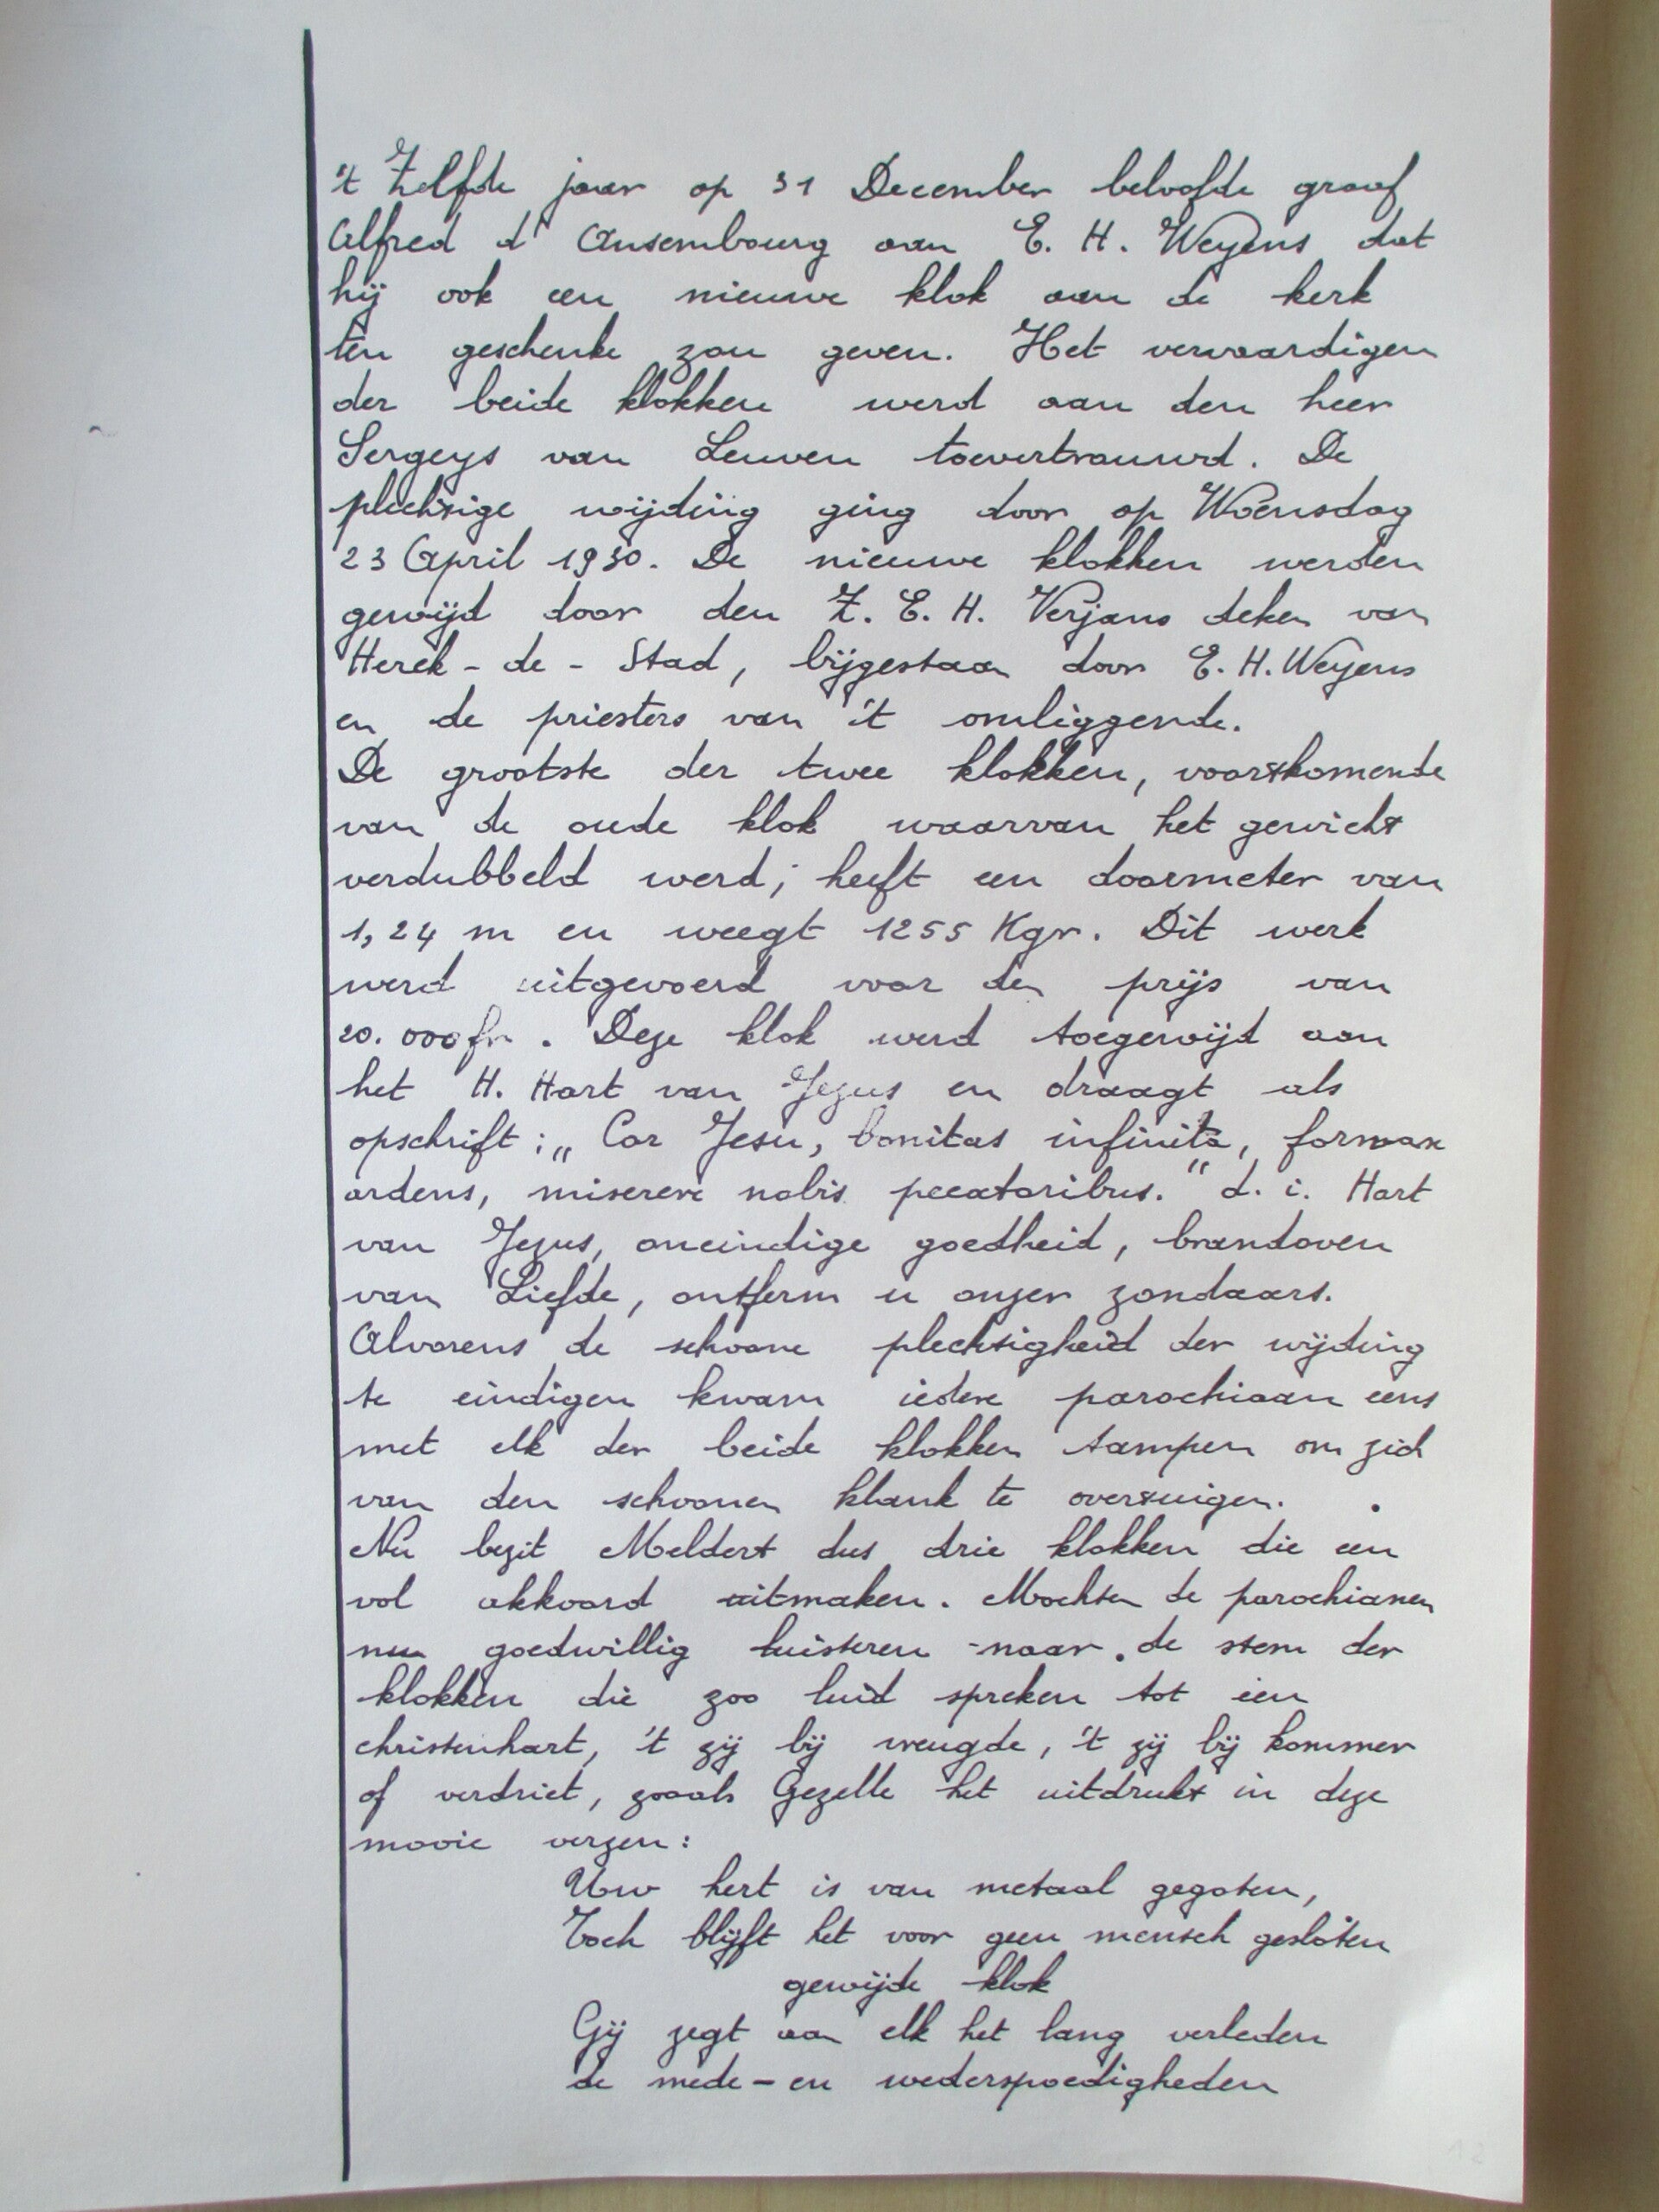 't Zelfde jaar op 31 December beloofde graaf
Alfred d' Ansembourg aan E. H. Weyens dat
hij ook een nieuwe klok aan de kerk
ten geschenke zou geven. Het vervaardigen
der beide klokken werd aan den heer
Sergeys van Leuven toevertrouwd. De
plechtige wijding ging door op Woensdag
23 April 1930. De nieuwe klokken werden
gewijd door den Z. E. H. Verjans deken van
Herck - de - Stad, bijgestaan door E. H. Weyens
en de priesters van 't omliggende.
De grootste der twee klokken, voortkomende
van de oude klok waarvan het gewicht
verdubbeld werd; heeft een doormeter van
1,24 m en weegt 1255 Kgr. Dit werk
werd uitgevoerd voor den prijs van
20.000 fr. Deze klok werd toegewijd aan
het H. Hart van Jezus en draagt als
opschrift: „ Cor Jesu, bonitas infinita, fornax
ardens, miserere nobis peccatoribus. " d. i. Hart
van Jezus, oneindige goedheid, brandoven
van Liefde, ontferm u onzer zondaars.
Alvorens de schoone plechtigheid der wijding
te eindigen kwam iedere parochiaan eens
met elk der beide klokken tampen om zich
van den schoonen klank te overtuigen.
Nu bezit Meldert dus drie klokken die een
vol akkoord uitmaken. Mochten de parochianen
nu goedwillig luisteren naar de stem der
klokken die zoo luid spreken tot een
christenhart, 't zij bij vreugde, 't zij bij kommer
of verdriet, zooals Gezelle het uitdrukt in deze
mooie verzen:
Uw hert is van metaal gegoten,
Toch blijft het voor geen mensch gesloten
gewijde klok
Gij zegt aan elk het lang verleden
de mede - en wederspoedigheden
12